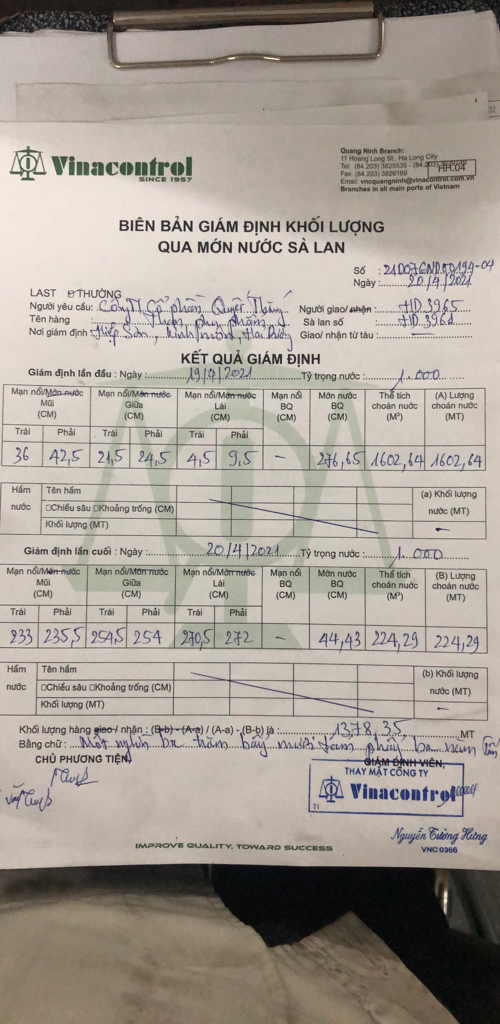 Vinacontrol
SINCE 1957
Quang Ninh Branch:
11 Hoang Long St., Ha Long City
Tel: (84.203) 3825535 -
Fax: (84.203) 3826169
HH.04
Email: vncquangninh@vinacontrol.com.vn
Branches in all main ports of Vietnam
BIÊN BẢN GIÁM ĐỊNH KHỐI LƯỢNG
QUA MỚN NƯỚC SÀ LAN
Số : 21D07GND00194-04
Ngày: 20/4/2021
LAST THƯỜNG
Người yêu cầu: Công ty Cổ phần Quyết Thắng
Người giao/ nhận : HD 3965
Tên hàng : Than
Sà lan số : HD 3961
Nơi giám định : Hiệp Sơn, Kinh Môn, Hải Dương
Giao/ nhận từ tàu :
KẾT QUẢ GIÁM ĐỊNH
Giám định lần đầu : Ngày : 19/4/2021 Tỷ trọng nước : 1.000
Mạn nổi/Mớn nước Mũi (CM) Mạn nổi/Mớn nước Giữa (CM) Mạn nổi/Mớn nước Lái (CM) Mạn nổi BQ (CM) Mớn nước BQ (CM) Thể tích choán nước (M³) (A) Lượng choán nước (MT)
Trái Phải Trái Phải Trái Phải
36 42,5 21,5 24,5 4,5 9,5 - 276,65 1602,64 1602,64
Hầm nước Tên hầm (a) Khối lượng nước (MT)
□Chiều sâu □Khoảng trống (CM)
Khối lượng (MT) -
Giám định lần cuối : Ngày : 20/4/2021 Tỷ trọng nước : 1.000
Mạn nổi/Mớn nước Mũi (CM) Mạn nổi/Mớn nước Giữa (CM) Mạn nổi/Mớn nước Lái (CM) Mạn nổi BQ (CM) Mớn nước BQ (CM) Thể tích choán nước (M³) (B) Lượng choán nước (MT)
Trái Phải Trái Phải Trái Phải
233 235,5 254,5 254 270,5 272 - 44,43 224,29 224,29
Hầm nước Tên hầm (b) Khối lượng nước (MT)
□Chiều sâu □Khoảng trống (CM)
Khối lượng (MT) -
Khối lượng hàng giao / nhận : (B-b) - (A-a) / (A-a) - (B-b) là : 1378,35 MT
Bằng chữ : Một nghìn ba trăm bảy mươi tám phẩy ba năm tấn
CHỦ PHƯƠNG TIỆN
GIÁM ĐỊNH VIÊN,
THAY MẶT CÔNG TY
Vinacontrol
Nguyễn Tường Hưng
VNC 0366
IMPROVE QUALITY, TOWARD SUCCESS